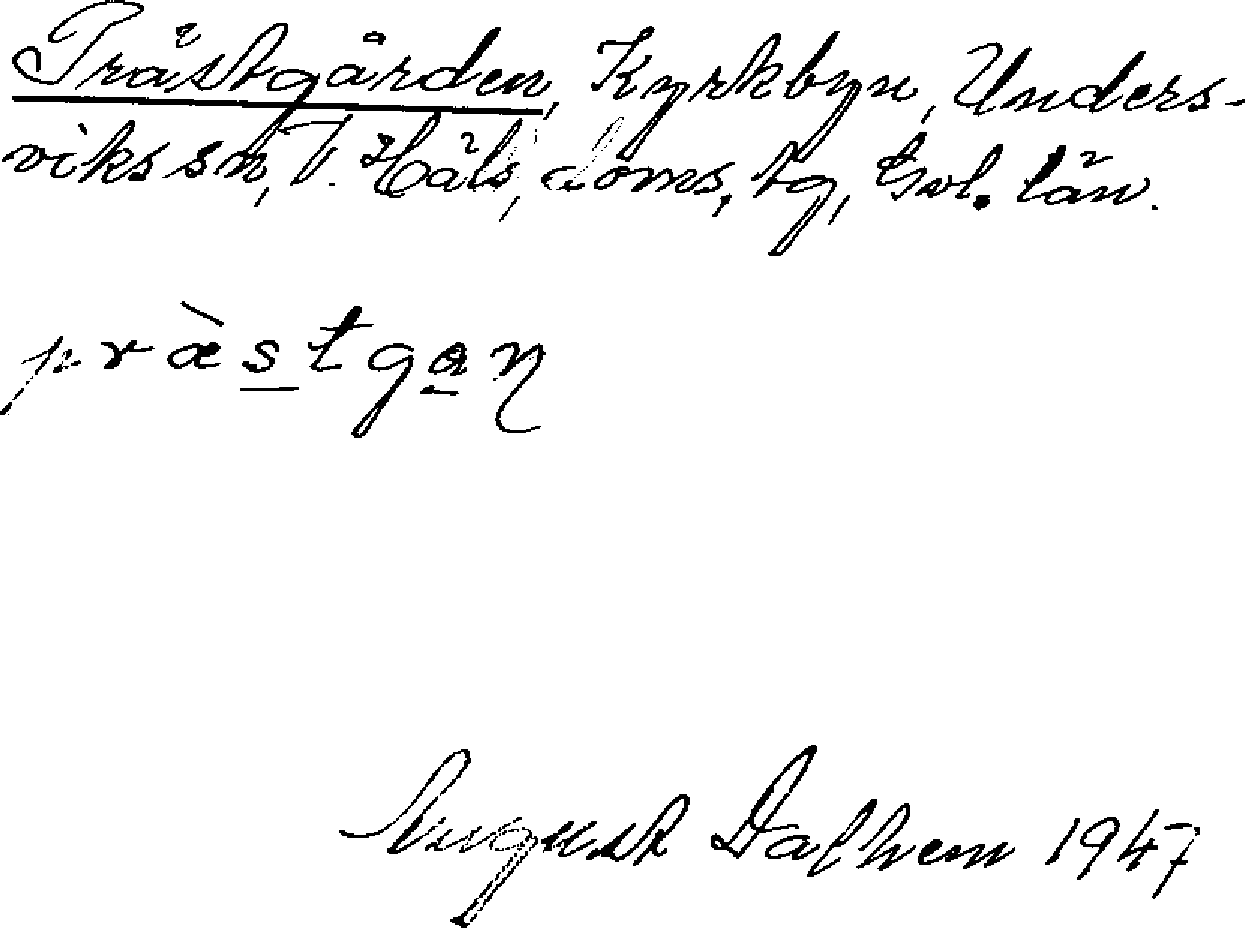 Prästgården, Kyrkbyn, Unders-
viks sn, V. Häls, doms, tg, Gvl. län.
præ̀stgan
August Dalhem 1947